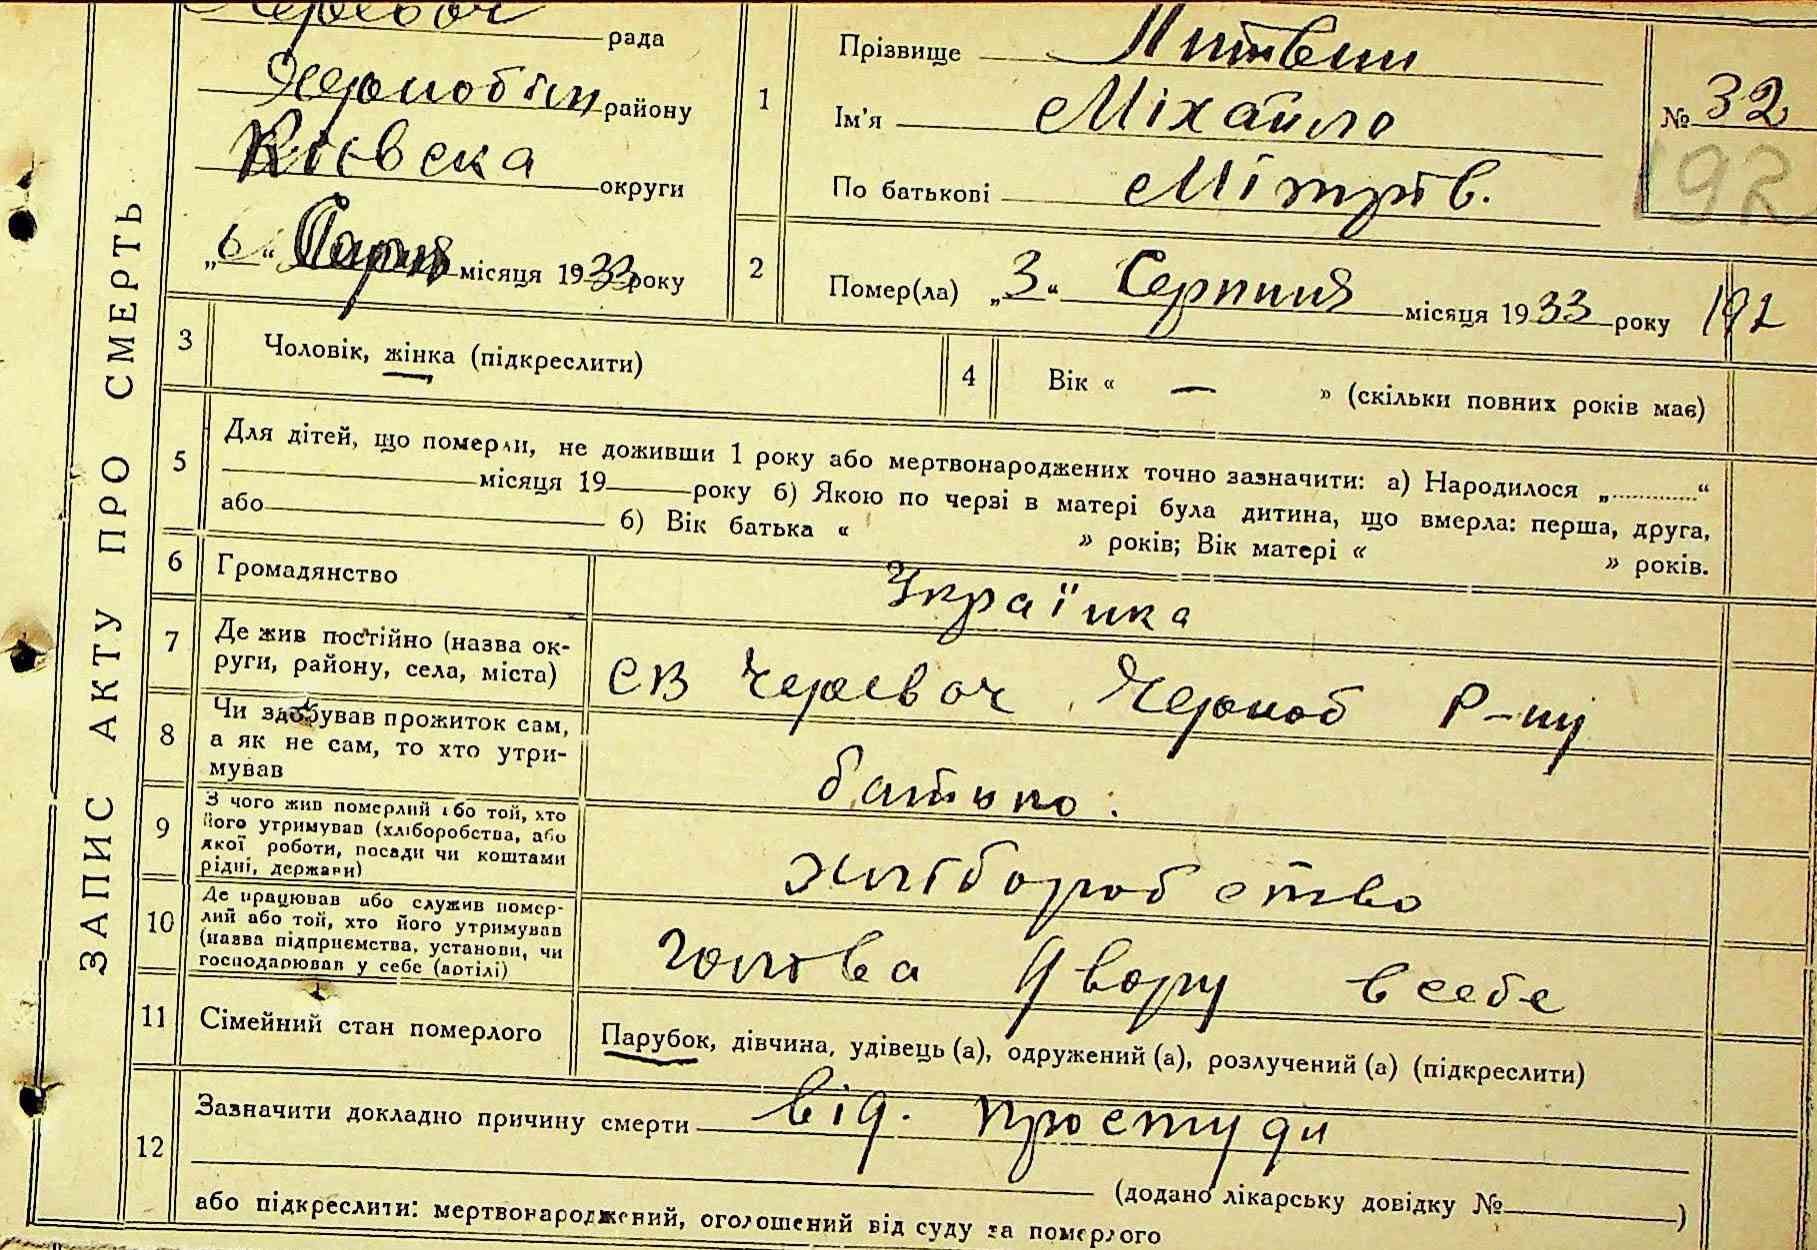 Черевач рада
Чорнобіл району
Київска округи
„6“ Серпня місяця 1933 року
ЗАПИС АКТУ ПРО СМЕРТЬ
1
Прізвище Литвин
Ім'я Міхайло
По батькові Мітрів.
№ 32
192
2
Помер(ла) „3“ Серпния місяця 1933 року
192
3 Чоловік, жінка (підкреслити)
4 Вік « — » (скільки повних років має)
5 Для дітей, що померли, не доживши 1 року або мертвонароджених точно зазначити: а) Народилося „............“
місяця 19 року б) Якою по черзі в матері була дитина, що вмерла: перша, друга,
або б) Вік батька « » років; Вік матері « » років.
6 Громадянство Українка
7 Де жив постійно (назва ок-
руги, району, села, міста)
СВ Черевач Черноб Р-ну
8 Чи здобував прожиток сам,
а як не сам, то хто утри-
мував
батько.
9 З чого жив померлий або той, хто
його утримував (хліборобства, або
якої роботи, посади чи коштами
рідні, держави)
хліборобство
10 Де працював або служив помер-
лий або той, хто його утримував
(назва підприємства, установи, чи
господарював у себе (артілі)
голова двору в себе
11 Сімейний стан померлого Парубок, дівчина, удівець (а), одружений (а), розлучений (а) (підкреслити)
12 Зазначити докладно причину смерти від. простуди
(додано лікарську довідку № )
або підкреслити: мертвонароджений, оголошений від суду за померлого